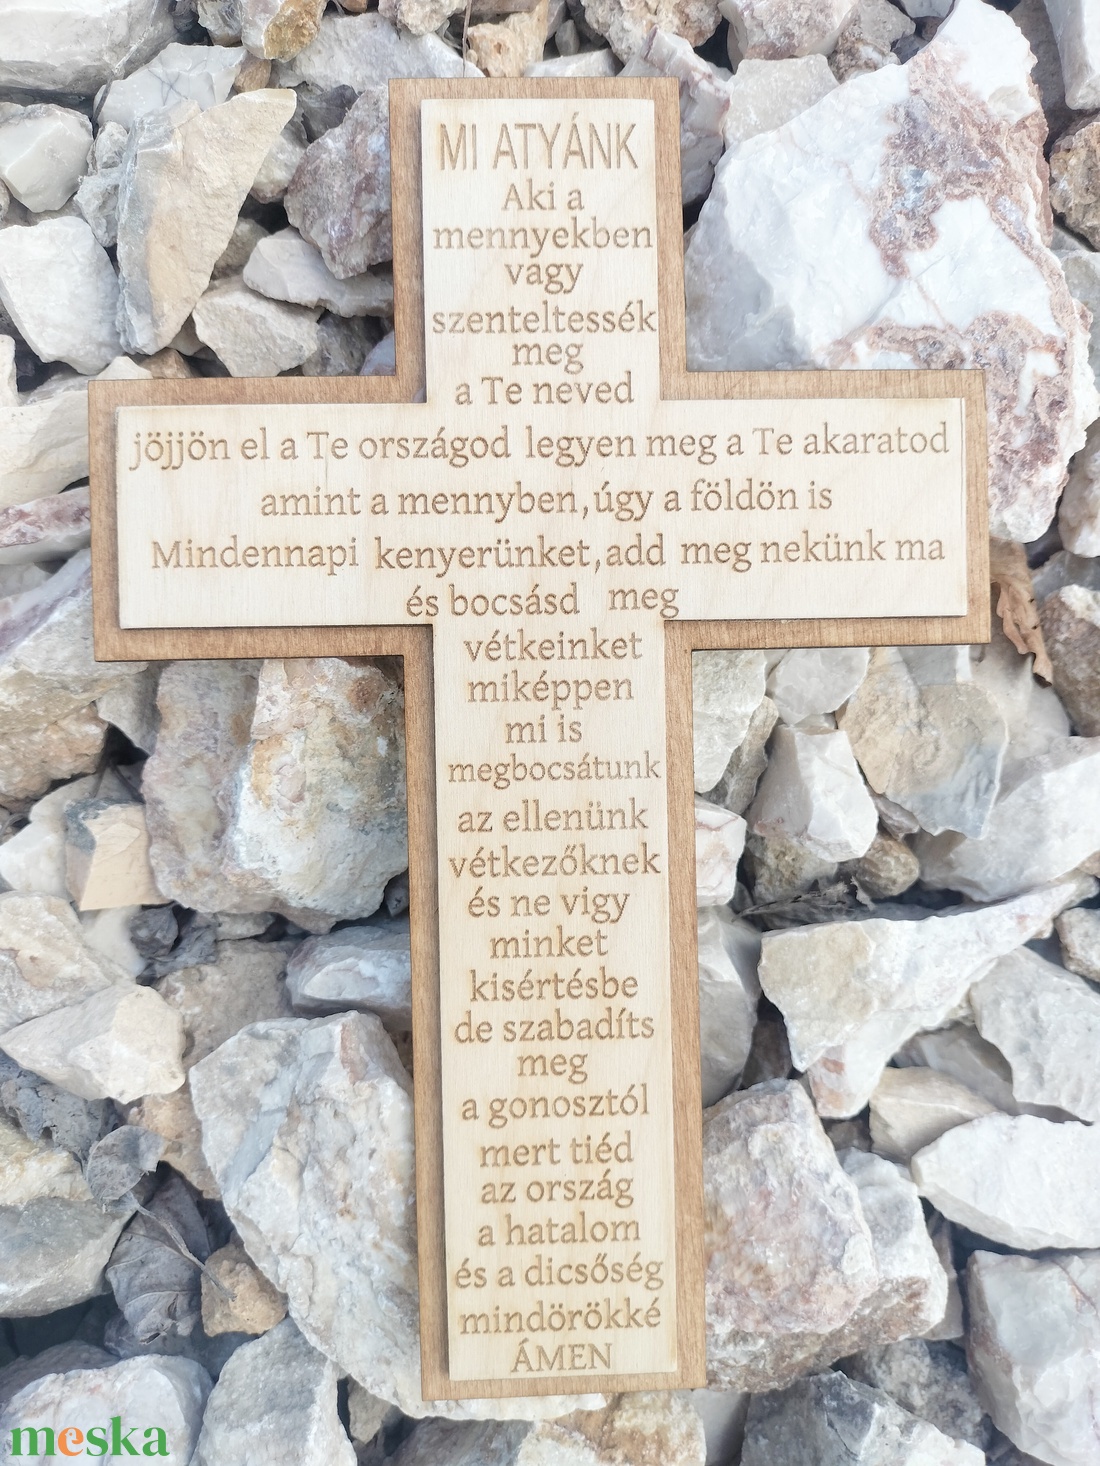 MI ATYÁNK
Aki a
mennyekben
vagy
szenteltessék
meg
a Te neved
jöjjön el a Te országod legyen meg a Te akaratod
amint a mennyben, úgy a földön is
Mindennapi kenyerünket, add meg nekünk ma
és bocsásd meg
vétkeinket
miképpen
mi is
megbocsátunk
az ellenünk
vétkezőknek
és ne vigy
minket
kisértésbe
de szabadíts
meg
a gonosztól
mert tiéd
az ország
a hatalom
és a dicsőség
mindörökké
ÁMEN
meska